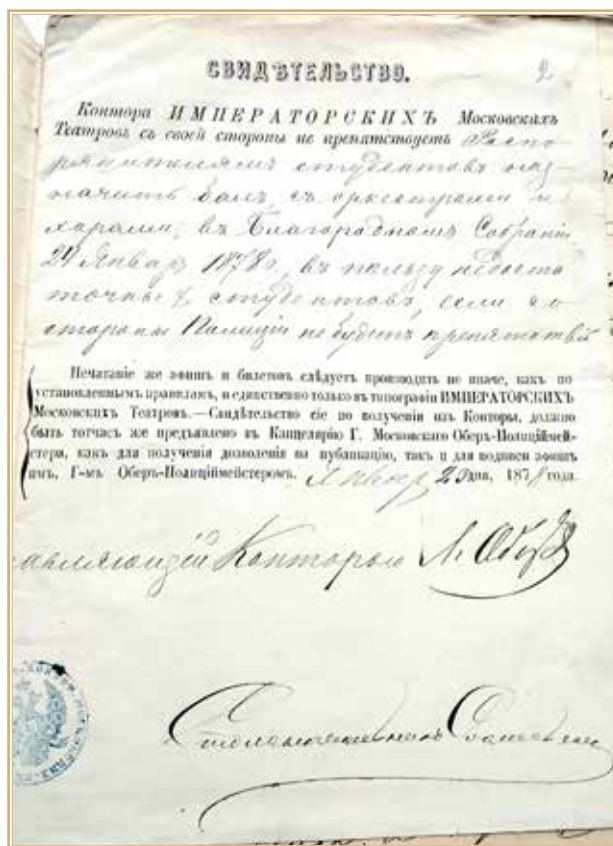 СВИДѢТЕЛЬСТВО.
2
Контора ИМПЕРАТОРСКИХЪ Московскихъ
Театровъ съ своей стороны не препятствуетъ Распо-
рядителямъ студентовъ наз-
начить балъ, съ оркестрами и
хорами, въ Благородномъ Собраніи
24 Январ 1878 г. въ пользу недоста
точныхъ студентовъ, если со
стороны Полиціи не будетъ препятствій
Печатаніе же афишъ и билетовъ слѣдуетъ производить не иначе, какъ по
установленнымъ правиламъ, и единственно только въ типографіи ИМПЕРАТОРСКИХЪ
Московскихъ Театровъ.—Свидѣтельство сіе по полученіи изъ Конторы, должно
быть тотчасъ же предъявлено въ Канцелярію Г. Московскаго Оберъ-Полиціймей-
стера, какъ для полученія дозволенія на публикацію, такъ и для подписи афишъ
имъ, Г-мъ Оберъ-Полиціймейстеромъ. Январ дня, 1878 года.
авляющій Конторою Л. Обер
Столоначальникъ